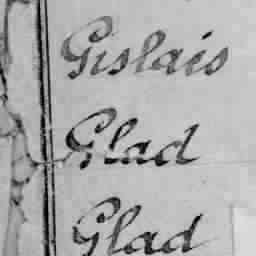 Gislais
Glad
Glad